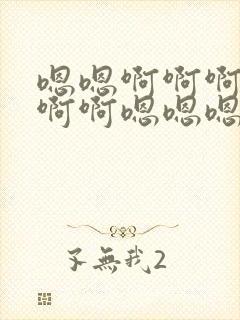 嗯嗯啊啊啊
啊啊嗯嗯嗯
不無我2